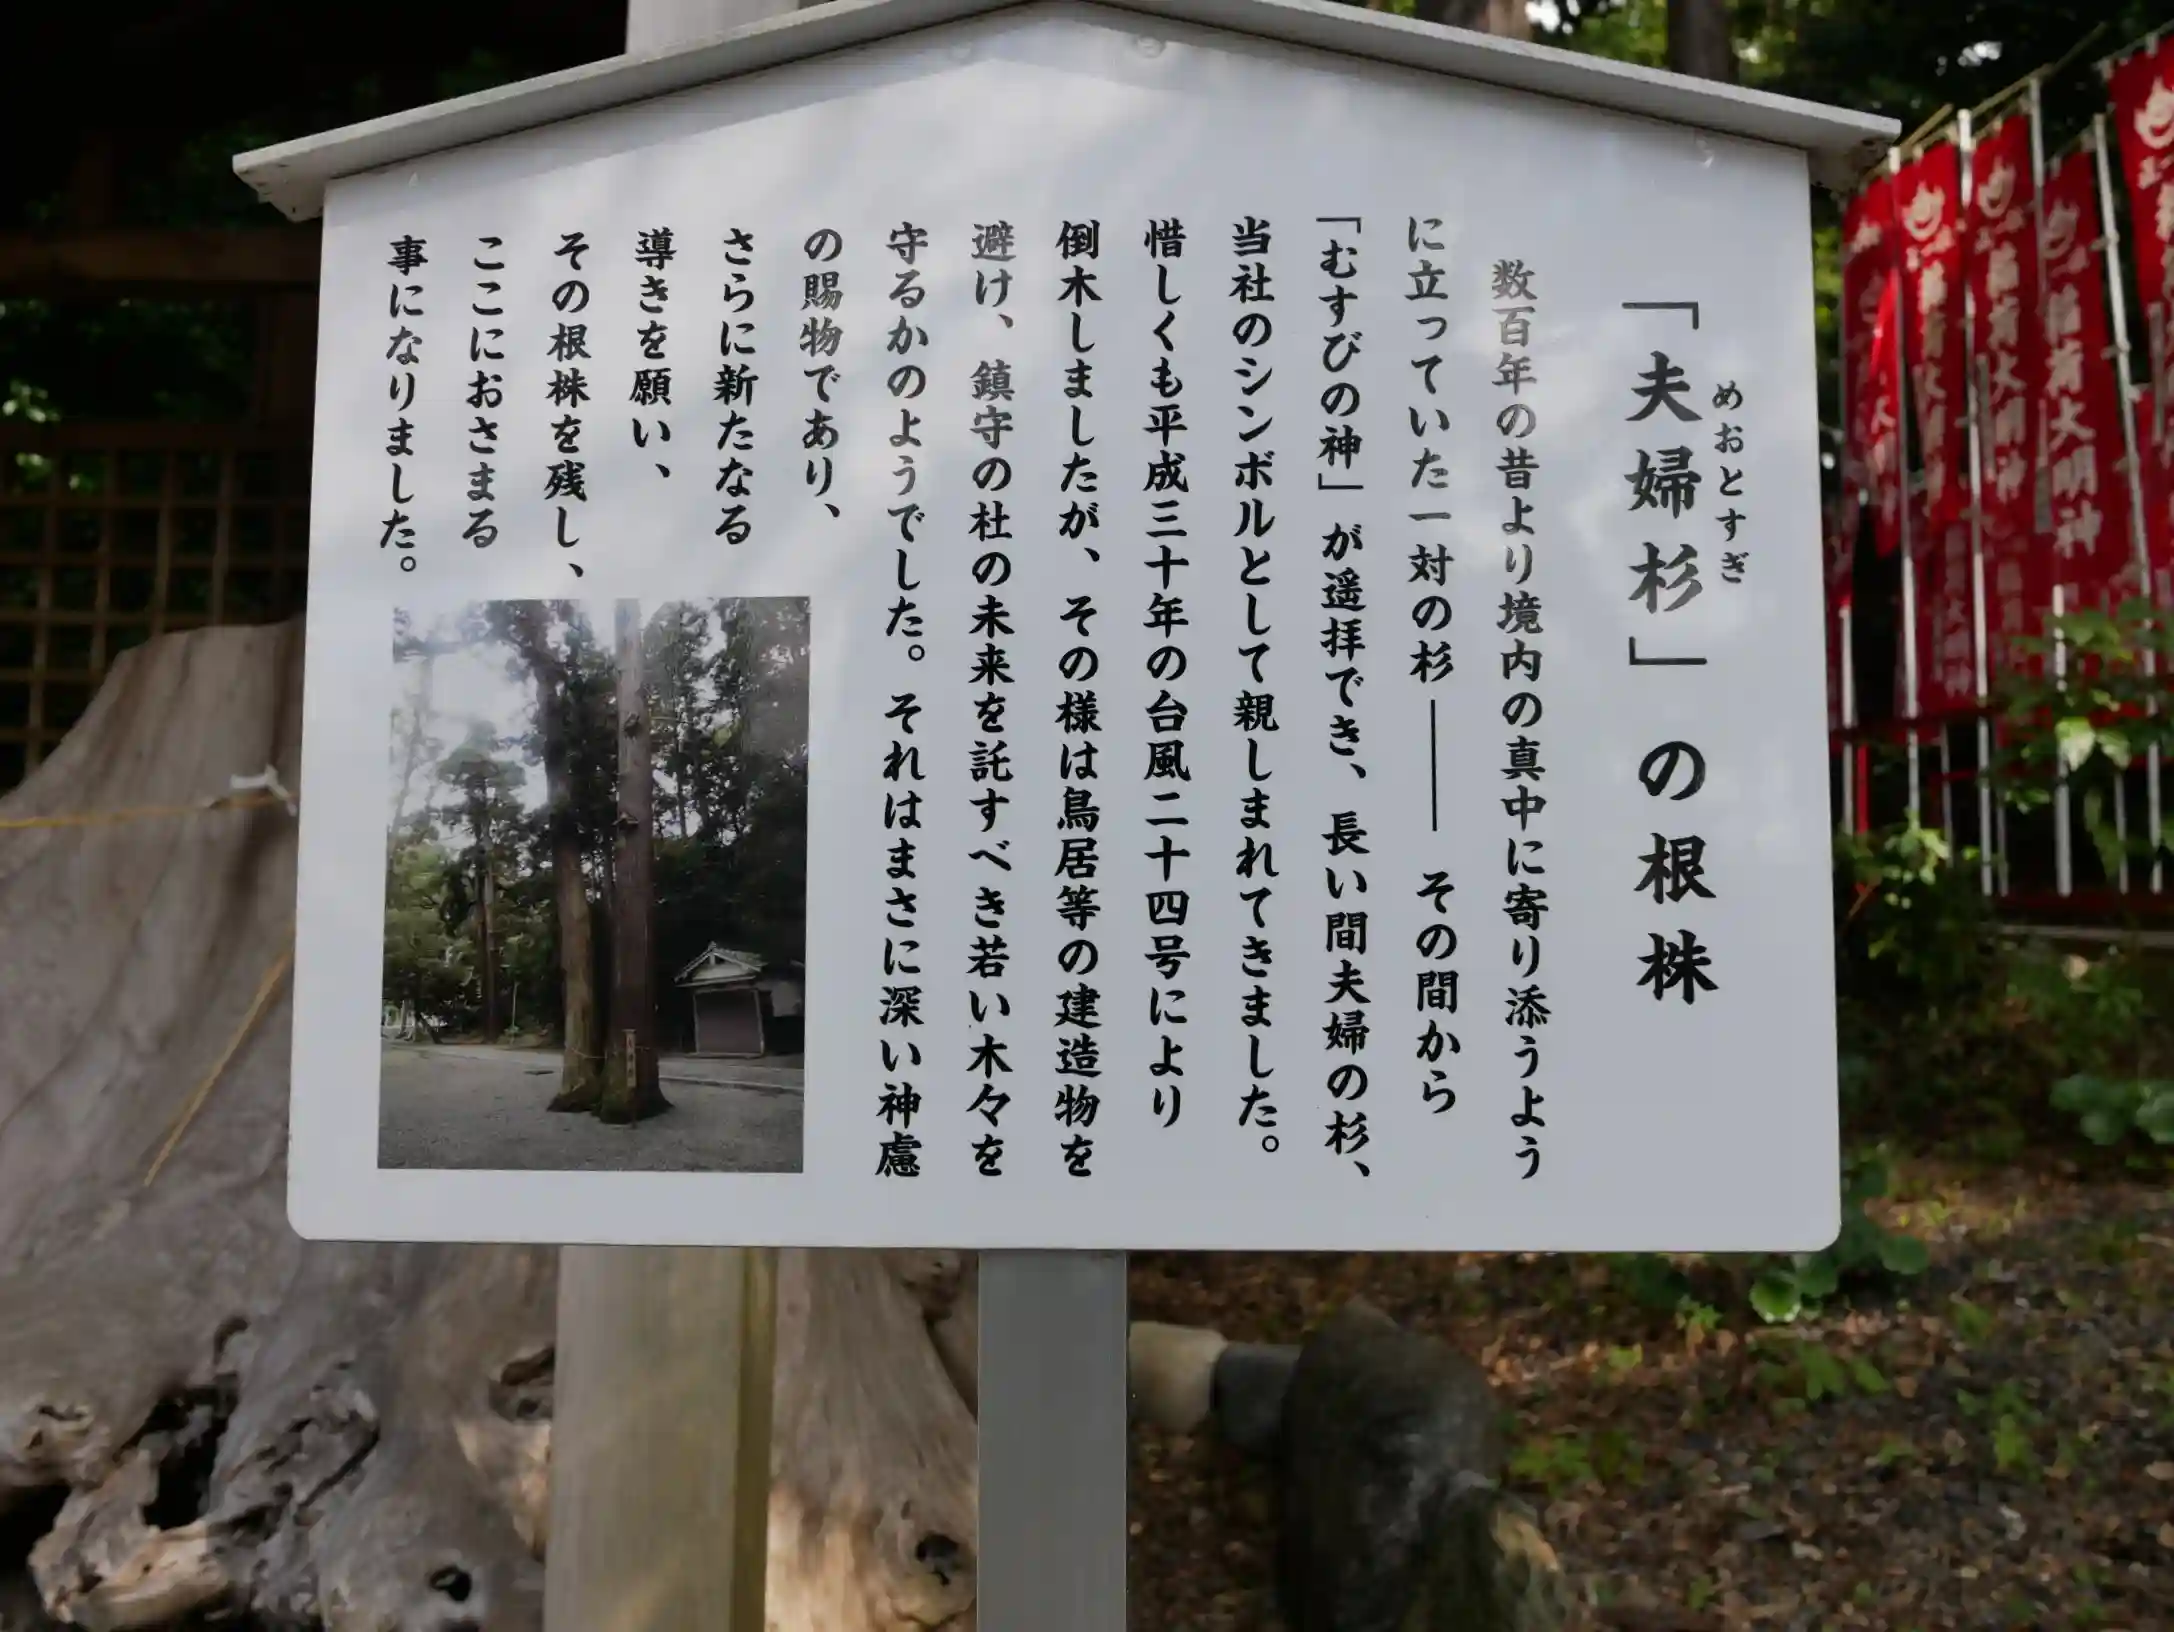 「夫婦杉」の根株
めおとすぎ
数百年の昔より境内の真中に寄り添うよう
に立っていた一対の杉――その間から
「むすびの神」が遥拝でき、長い間夫婦の杉、
当社のシンボルとして親しまれてきました。
惜しくも平成三十年の台風二十四号により
倒木しましたが、その様は鳥居等の建造物を
避け、鎮守の杜の未来を託すべき若い木々を
守るかのようでした。それはまさに深い神慮
の賜物であり、
さらに新たなる
導きを願い、
その根株を残し、
ここにおさまる
事になりました。
稲荷大明神
稲荷大明神
稲荷大明神